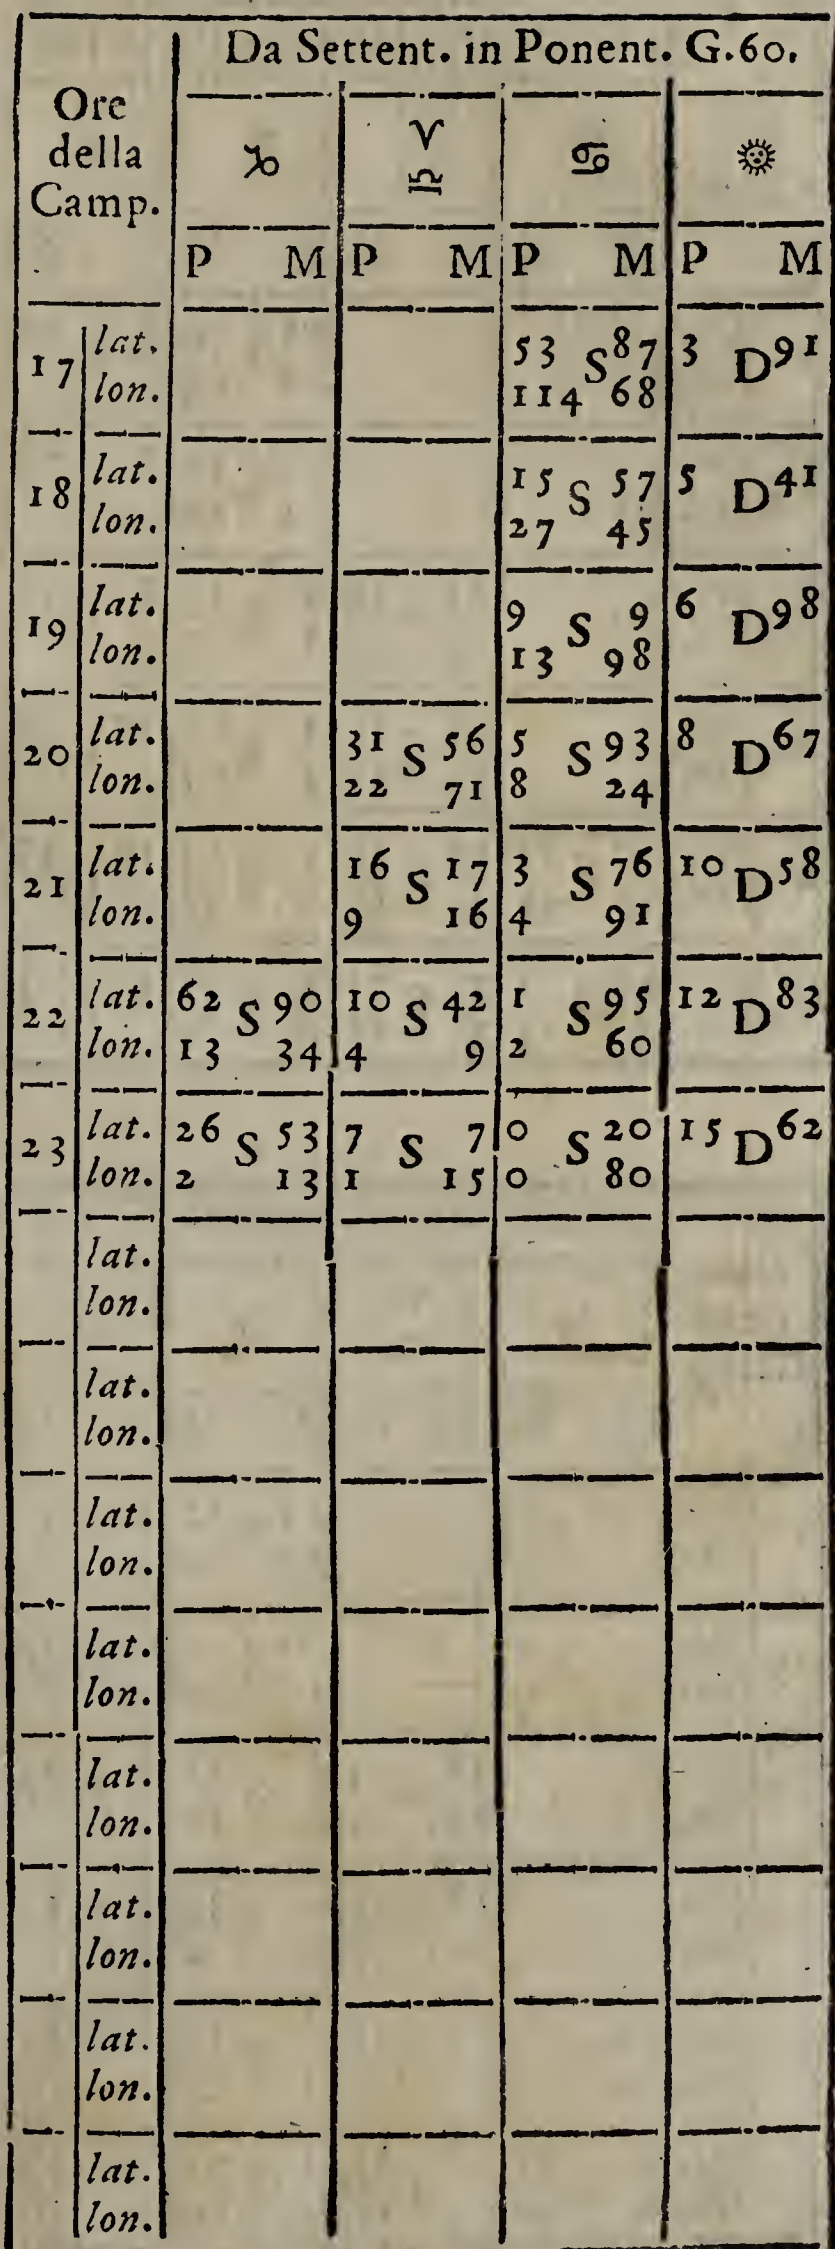 Da Settent. in Ponent. G.60.
Ore
della
Camp.
♑ ♈ ♎ ♋ ☀
P M P M P M P M
17 lat. 53 S 87 3 D 91
lon. 114 68
18 lat. 15 S 57 5 D 41
lon. 27 45
19 lat. 9 S 9 6 D 98
lon. 13 98
20 lat. 31 S 56 5 S 93 8 D 67
lon. 22 71 8 24
21 lat. 16 S 17 3 S 76 10 D 58
lon. 9 16 4 91
22 lat. 62 S 90 10 S 42 1 S 95 12 D 83
lon. 13 34 4 9 2 60
23 lat. 26 S 53 7 S 7 0 S 20 15 D 62
lon. 2 13 1 15 0 80
lat.
lon.
lat.
lon.
lat.
lon.
lat.
lon.
lat.
lon.
lat.
lon.
lat.
lon.
lat.
lon.